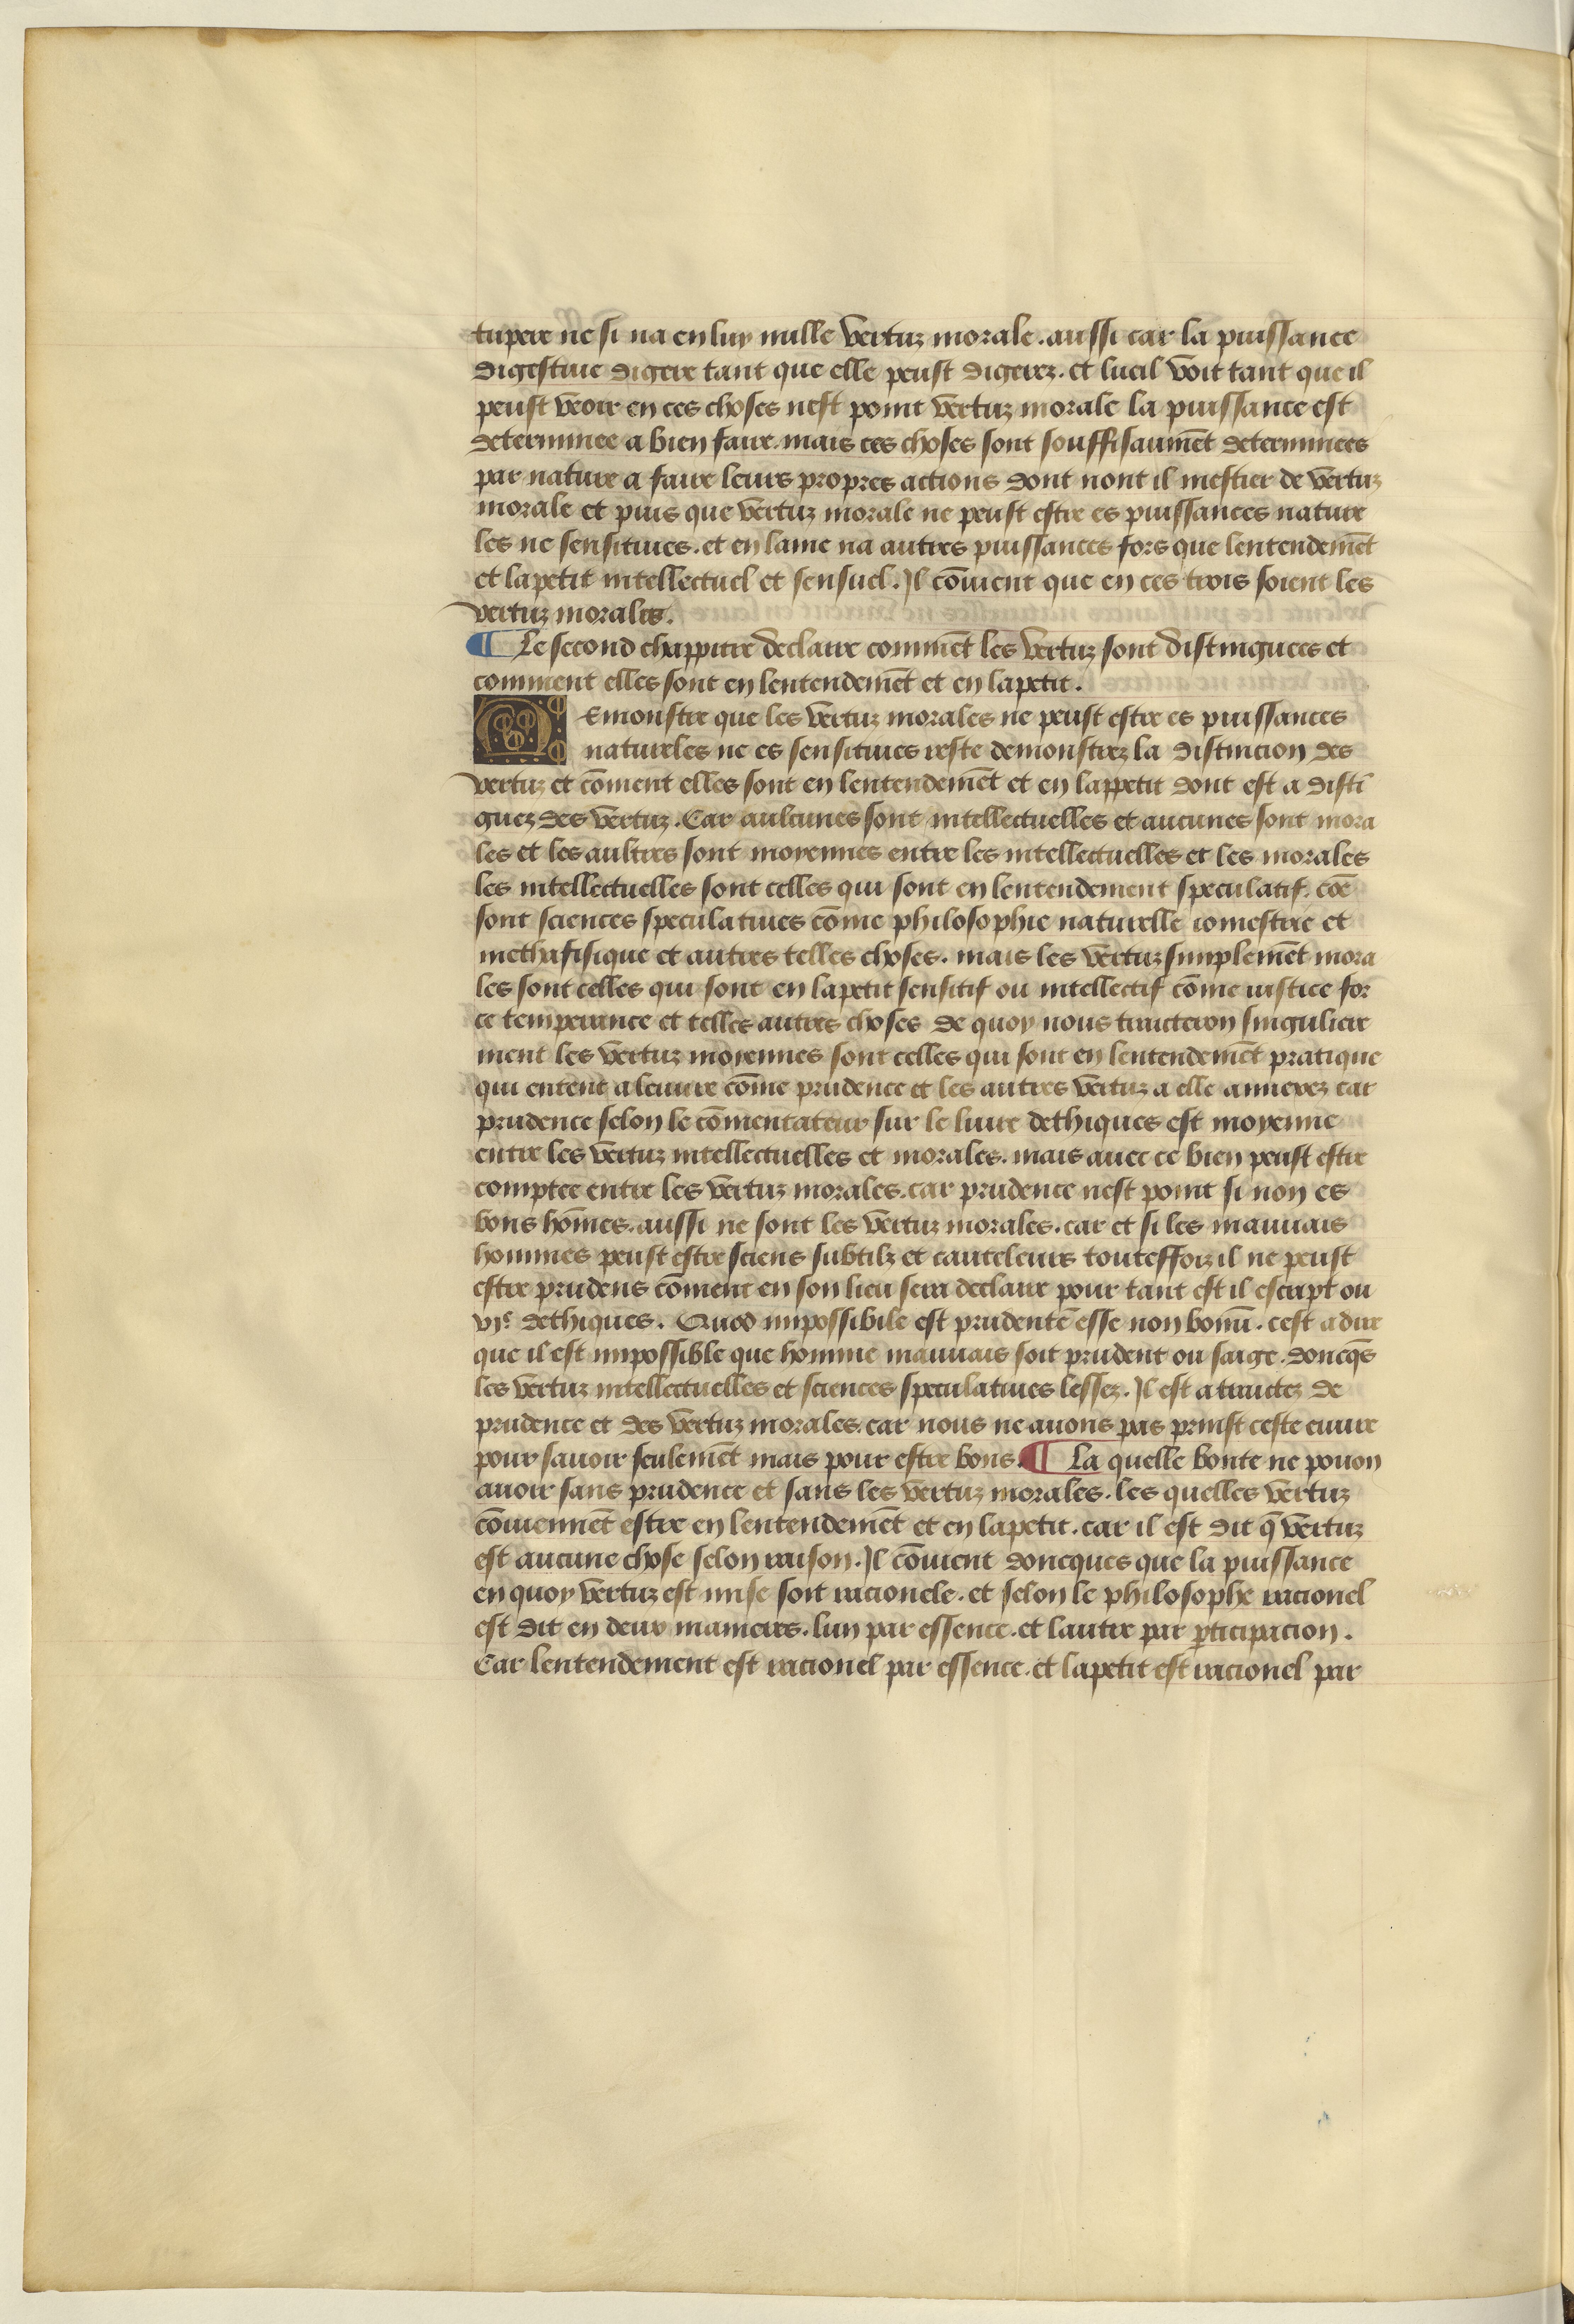 tupere ne si na en luy nulle vertuz morale. aussi car la puissance
digestiue digere tant que elle peust digerez. et lueil voit tant que il
peust veoir en ces choses nest point vertuz morale la puissance est
determinee a bien faire. mais ces choses sont souffisaumēt determinees
par nature a faire leurs propres actions dont nont il mestier de vertuz
morale et puis que vertuz morale ne peust estre es puissances nature
les ne sensitiues. et en lame na autres puissances fors que lentendemēt
et lapetit intellectuel et sensuel. Il cōuient que en ces trois soient les
vertuz morales.
¶ Le second chappitre declaire commēt les vertuz sont distinguees et
comment elles sont en lentendemēt et en lapetit.
Demonstre que les vertuz morales ne peust estre es puissances
natureles ne es sensitiues reste demonstrez la distincion des
vertuz et cōment elles sont en lentendemēt et en lappetit dont est a disti
guez des vertuz. Car aulcunes sont intellectuelles et aucunes sont mora
les et les aultres sont moyennes entre les intellectuelles et les morales
les intellectuelles sont celles qui sont en lentendement speculatif. cōe
sont sciences speculatiues cōme philosophie naturelle iomestrie et
methafisique et autres telles choses. mais les vertuz simplemēt mora
les sont celles qui sont en lapetit sensitif ou intellectif cōme iustice for
ce temperance et telles autres choses de quoy nous tracteron singuliere
ment les vertuz moyennes sont celles qui sont en lentendemēt pratique
qui entent a leuure cōme prudence et les autres vertuz a elle annexez car
prudence selon le cōmentateur sur le liure dethiques est moyenne
entre les vertuz intellectuelles et morales. mais auec ce bien peust estre
comptee entre les vertuz morales. car prudence nest point si non es
bons hōmes. aussi ne sont les vertuz morales. car et si les mauuais
hommes peust estre sciens subtilz et cauteleurs touteffoiz il ne peust
estre prudens cōment en son lieu sera declaire pour tant est il escript ou
vjᵉ dethiques. Quod impossibile est prudentē esse non bonū. cest a dire
que il est impossible que homme mauuais soit prudent ou saige. doncqs
les vertuz intellectuelles et sciences speculatiues lessez. Il est a tractez de
prudence et des vertuz morales. car nous ne auons pas prinst ceste euure
pour sauoir seulemēt mais pour estre bons. ¶ La quelle bonte ne pouon
auoir sans prudence et sans les vertuz morales. les quelles vertuz
cōuiennēt estre en lentendemēt et en lapetit. car il est dit q̄ vertuz
est aucune chose selon raison. Il cōuient doncques que la puissance
en quoy vertuz est mise soit racionele. et selon le philosophe racionel
est dit en deux manieres. lun par essence. et lautre par ꝑticipacion.
Car lentendement est racionel par essence. et lapetit est racionel par